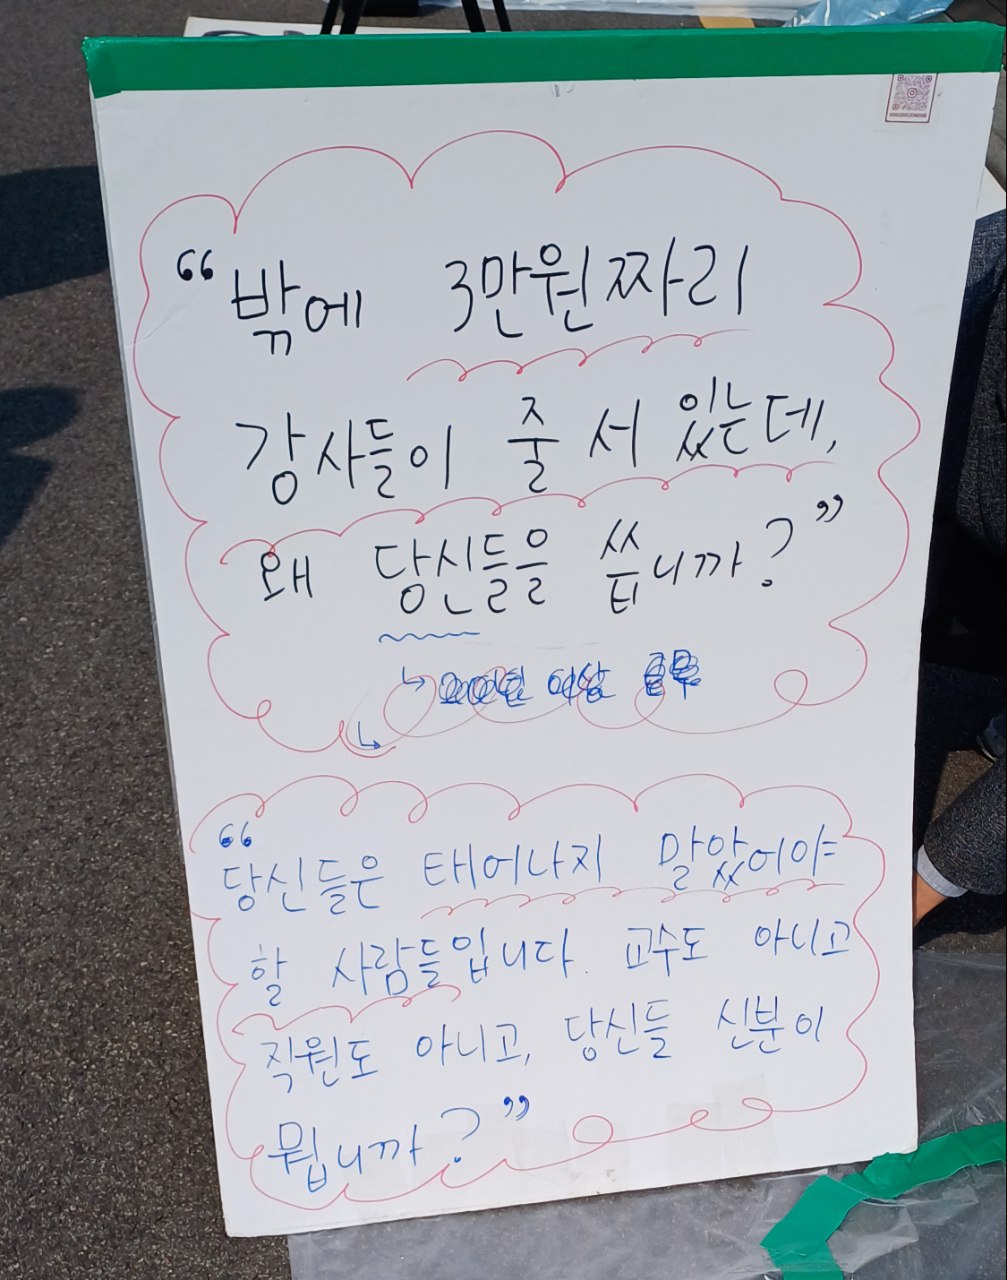 “밖에 3만원짜리
강사들이 줄 서 있는데,
왜 당신들을 씁니까?”
↳
↳
“당신들은 태어나지 말았어야
할 사람들입니다. 교수도 아니고
직원도 아니고, 당신들 신분이
뭡니까?”